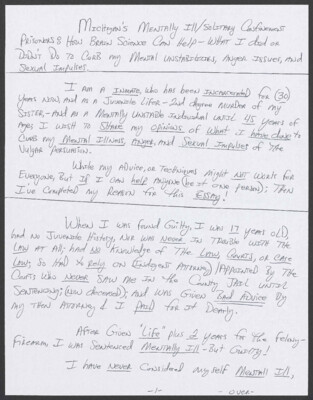 Michigan's Mentally Ill/Solitary Confinement
Prisoners & How Brain Science Can Help - What I did or
Didn't Do to Curb my Mental Instabilities, Anger Issues, and
Sexual Impulses.
I am a Inmate, who has been incarcerated for (30)
years now, and as a Juvenile Lifer - 2nd degree murder of my
Sister - And as a Mentally Unstable individual until 45 years of
age. I wish to Share my opinions of What I have done to
Curb my Mental Illness, Anger, and Sexual Impulses of the
Vulgar Persuasion.
While my Advice, or Techniques might not work for
Everyone, But If I can help Anyone (be it one person); Then
I've Completed my Reason for this Essay!
When I was found Guilty, I was 17 years old,
had no Juvenile History, Nor was Never in Trouble with the
Law at All; had No Knowledge of the Laws, Courts, or Case
Law; So had to Rely on (Indigent Attorney) Appointed by the
Courts who Never Saw me in the County Jail Until
Sentencing; (now deceased); and was given bad Advice by
my then Attorney & I paid for it Dearly.
After Given "Life" plus 2 years for the felony-
Firearm I was Sentenced Mentally Ill - But Guilty!
I have Never Considered my self Mentally Ill,
-1- -over-